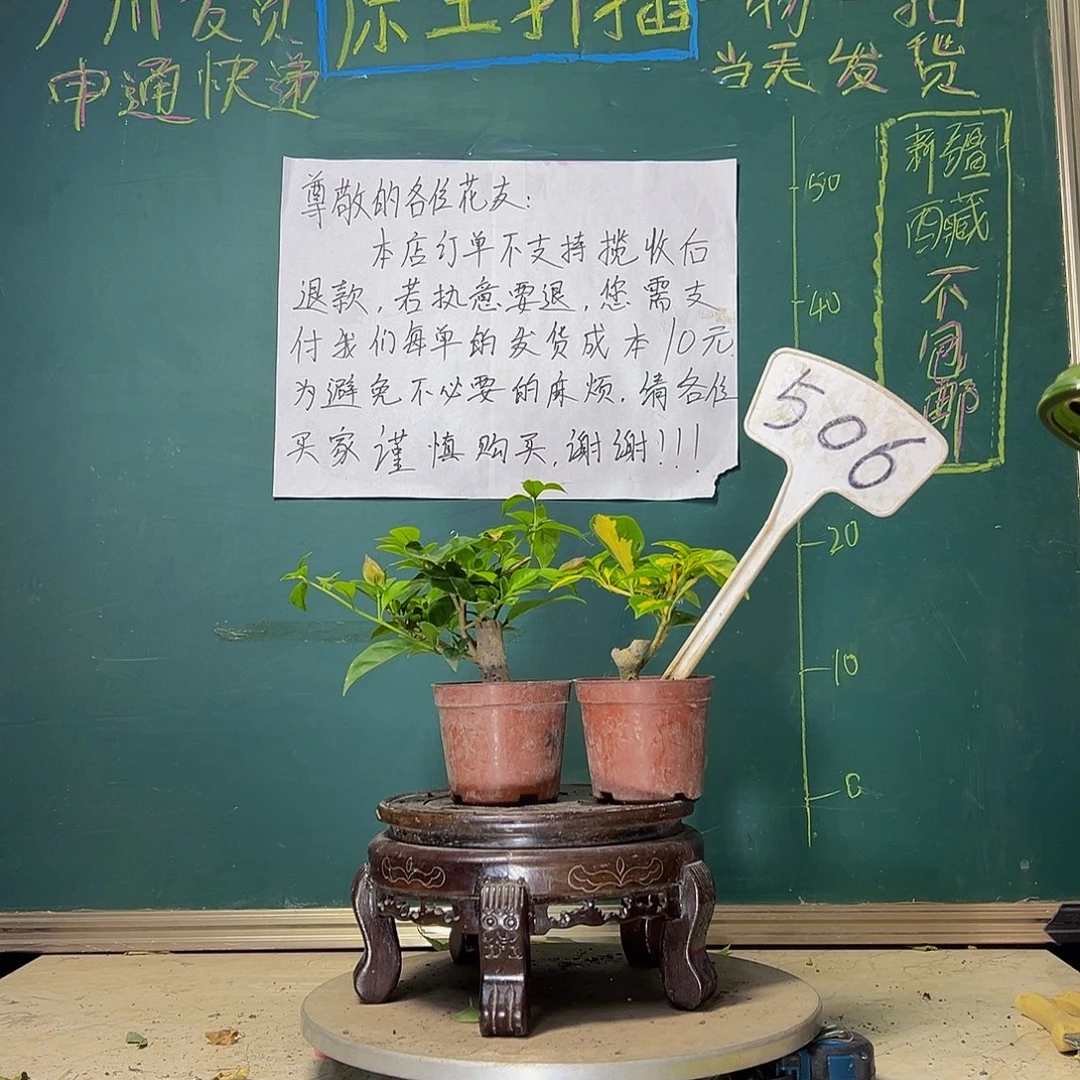 广州发货
原土扦插
一物一拍
申通快递
当天发货
尊敬的各位花友:
本店订单不支持揽收后
退款,若执意要退,您需支
付我们每单的发货成本10元
为避免不必要的麻烦.请各位
买家谨慎购买,谢谢!!!
新疆
西藏
不
包
邮
50
40
506
20
10
0